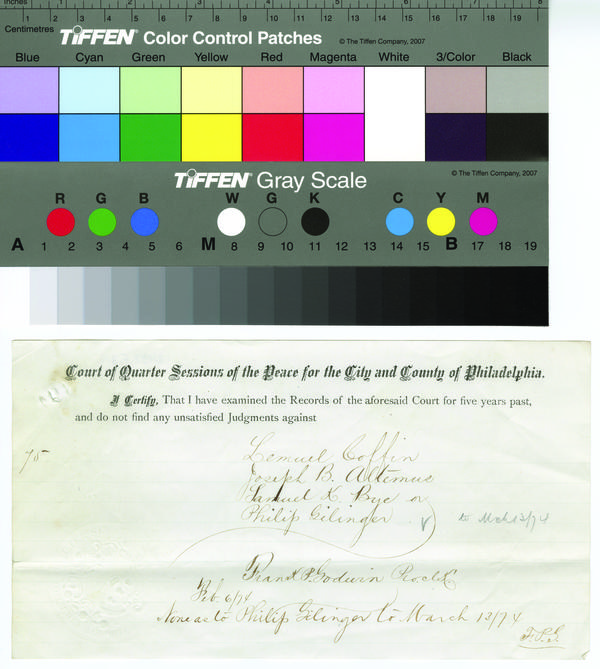 Inches 1 2 3 4 5 6 7 8
Centimetres 1 2 3 4 5 6 7 8 9 10 11 12 13 14 15 16 17 18 19
TIFFEN Color Control Patches © The Tiffen Company, 2007
Blue Cyan Green Yellow Red Magenta White 3/Color Black
TIFFEN Gray Scale © The Tiffen Company, 2007
R G B W G K C Y M
A 1 2 3 4 5 6 M 8 9 10 11 12 13 14 15 B 17 18 19
Court of Quarter Sessions of the Peace for the City and County of Philadelphia.
I Certify, That I have examined the Records of the aforesaid Court for five years past,
and do not find any unsatisfied Judgments against
75
Lemuel Coffin
Joseph B. Altemus
Samuel K. Bye or
Philip Gilinger
to Mch 13/74
Frank P. Godwin
Feb 6/74
None as to Philip Gilinger to March 13/74